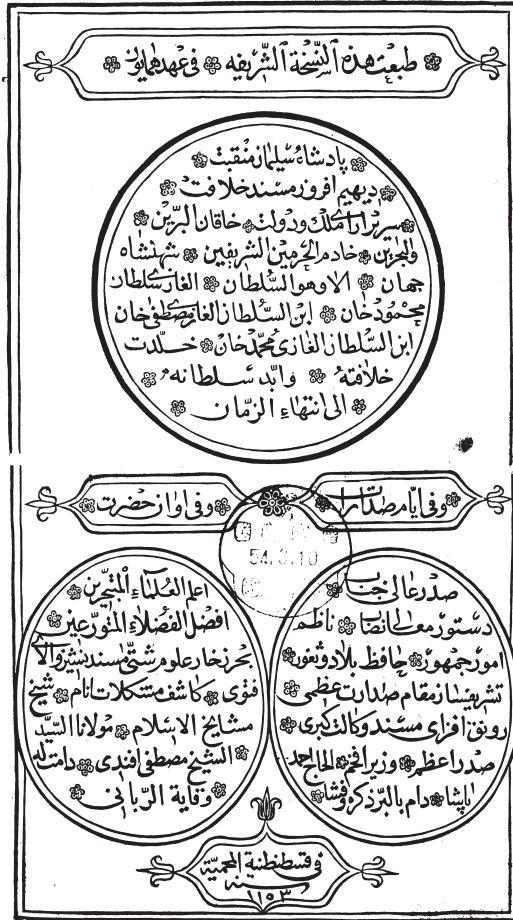 طبعت هذه النسخة الشريفه في عهد همايون
پادشاه سليمان منقبت
ديهيم افروز مسند خلافت
سرير اراى ملك ودولت خاقان البرين
والبحرين خادم الحرمين الشريفين شهنشاه
جهان الا وهو السلطان الغازى سلطان
محمود خان ابن السلطان الغازى مصطفى خان
ابن السلطان الغازى محمد خان خلدت
خلافته وابد سلطانه
الى انتهاء الزمان
وفى ايام صدارت
صدر عالى جناب
دستور معالى انتصاب ناظم
امور جمهور حافظ بلاد وثغور
تشريفساز مقام صدارت عظمى
رونق افزاى مسند وكالت كبرى
صدر اعظم وزير افخم الحاج احمد
پاشا دام بالبر ذكره وفشا
وفى اوان حضرت
اعلم العلماء المتبحرين
افضل الفضلاء المتورعين
بحر زخار علوم شتى مسند نشين والاى
فتوى كاشف مشكلات انام شيخ
مشايخ الاسلام مولانا السيد
الشيخ مصطفى افندى دامت له
وقاية الربانى
54.3.10
فى قسطنطنية المحمية
سنه
١١٥٣